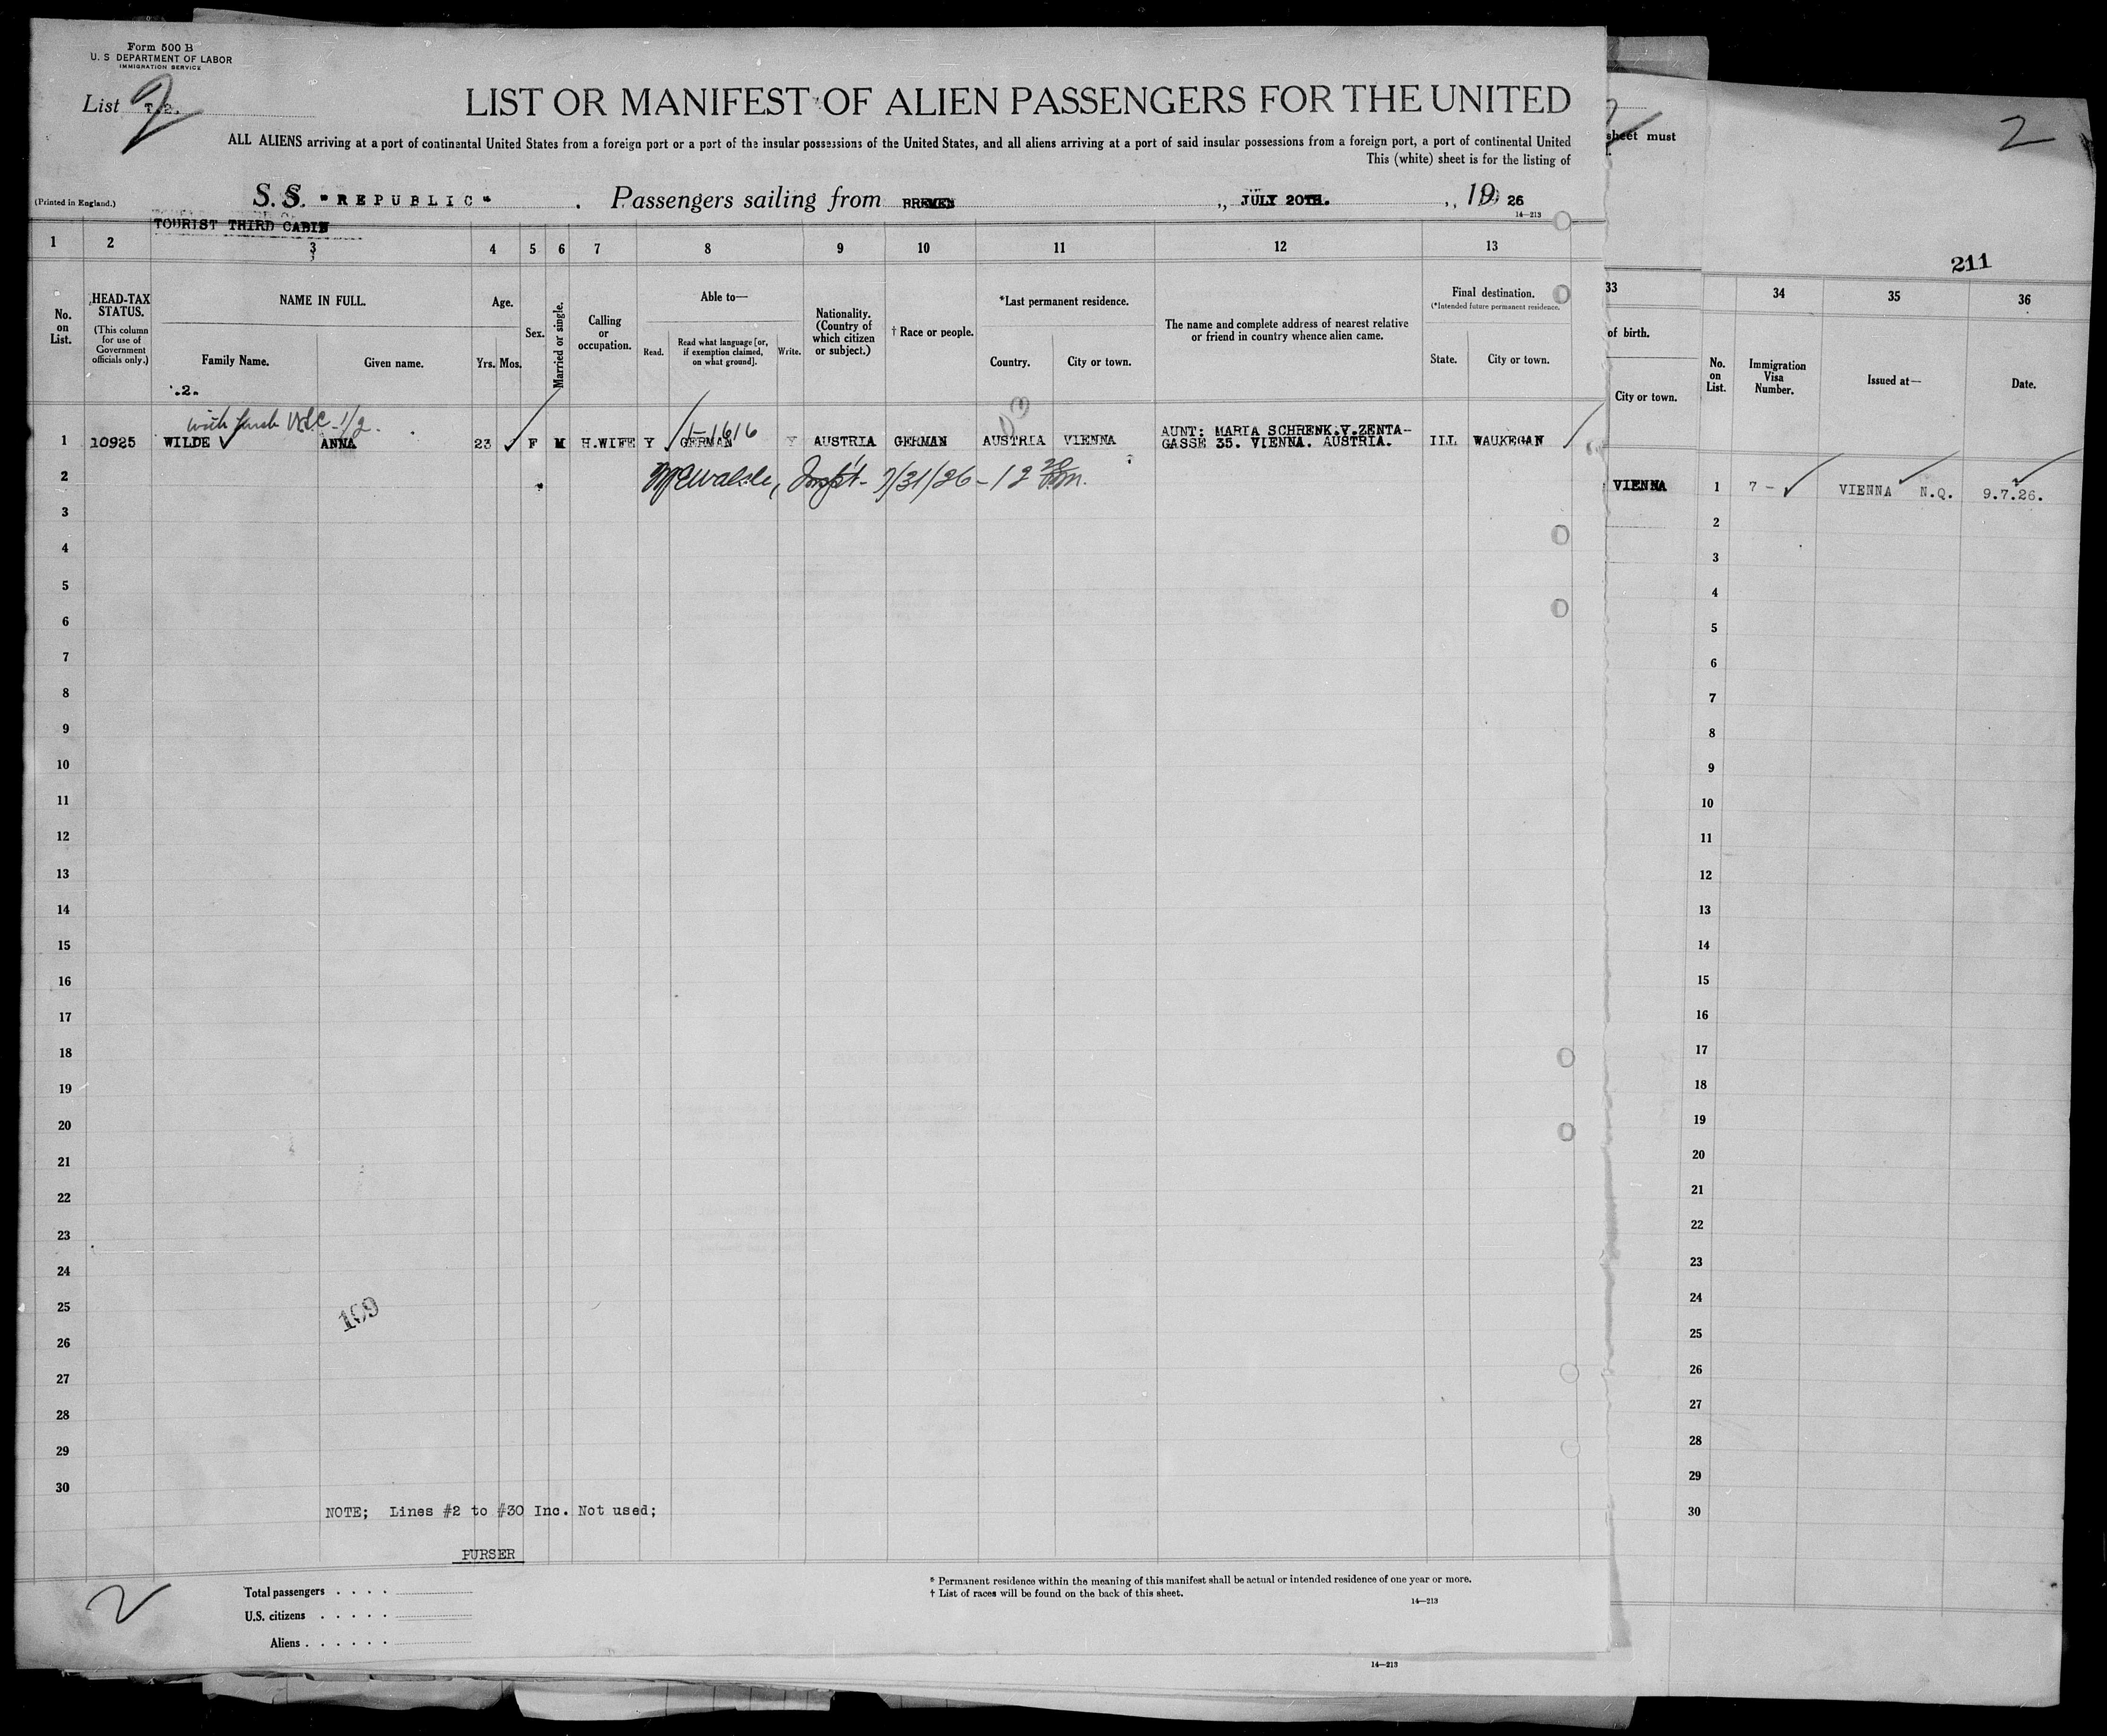 Form 500 B
U. S DEPARTMENT OF LABOR
IMMIGRATION SERVICE
List T.2.
2
LIST OR MANIFEST OF ALIEN PASSENGERS FOR THE UNITED
ALL ALIENS arriving at a port of continental United States from a foreign port or a port of the insular possessions of the United States, and all aliens arriving at a port of said insular possessions from a foreign port, a port of continental United
This (white) sheet is for the listing of
(Printed in England.)
S. S. "REPUBLIC" . Passengers sailing from BREMEN ,, JULY 20TH. ,, 19 26
14—213
TOURIST THIRD CABIN
1 2 3 4 5 6 7 8 9 10 11 12 13
No. on List.
HEAD-TAX STATUS.
(This column for use of Government officials only.)
NAME IN FULL.
Family Name. Given name.
.2.
Age.
Yrs. Mos.
Sex.
Married or single.
Calling or occupation.
Able to—
Read. Read what language [or, if exemption claimed, on what ground]. Write.
Nationality. (Country of which citizen or subject.)
† Race or people.
*Last permanent residence.
Country. City or town.
The name and complete address of nearest relative or friend in country whence alien came.
Final destination.
(*Intended future permanent residence.)
State. City or town.
1 10925 WILDE ANNA 23 F M H.WIFE Y GERMAN Y AUSTRIA GERMAN AUSTRIA VIENNA AUNT: MARIA SCHRENK.V.ZENTA-
GASSE 35. VIENNA. AUSTRIA. ILL WAUKEGAN
1-1616
2 Inspt- 7/31/26 - 12
3
4
5
6
7
8
9
10
11
12
13
14
15
16
17
18
19
20
21
22
23
24
25
26
27
28
29
30
199
NOTE; Lines #2 to #30 Inc. Not used;
PURSER
2
Total passengers
U.S. citizens
Aliens
* Permanent residence within the meaning of this manifest shall be actual or intended residence of one year or more.
† List of races will be found on the back of this sheet.
14—213
14—213
sheet must
33
of birth.
City or town.
VIENNA
2
211
34 35 36
No. on List.
Immigration Visa Number.
Issued at—
Date.
1 7 - VIENNA N.Q. 9.7.26.
2
3
4
5
6
7
8
9
10
11
12
13
14
15
16
17
18
19
20
21
22
23
24
25
26
27
28
29
30